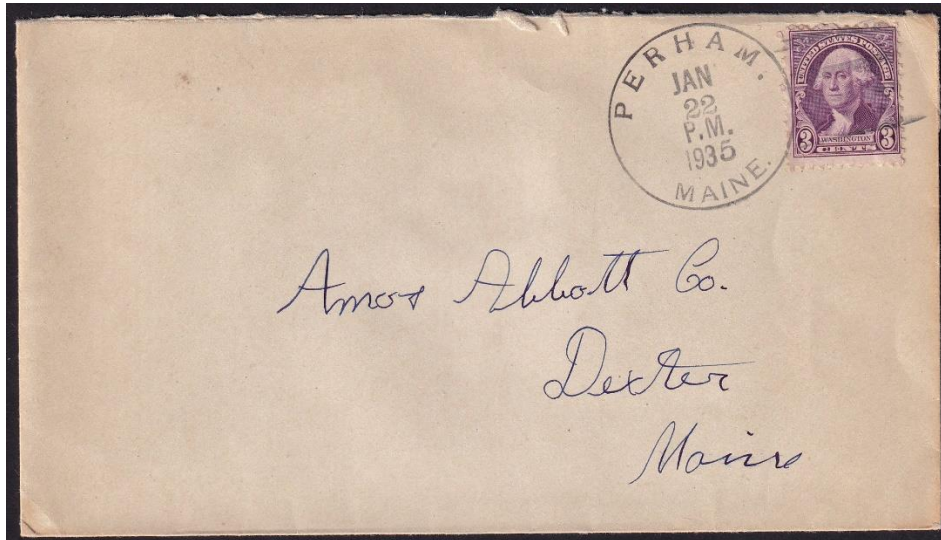 PERHAM.
JAN
22
P.M.
1935
MAINE.
UNITED STATES POSTAGE
WASHINGTON
3 CENTS 3
Amos Abbott Co.
Dexter
Maine